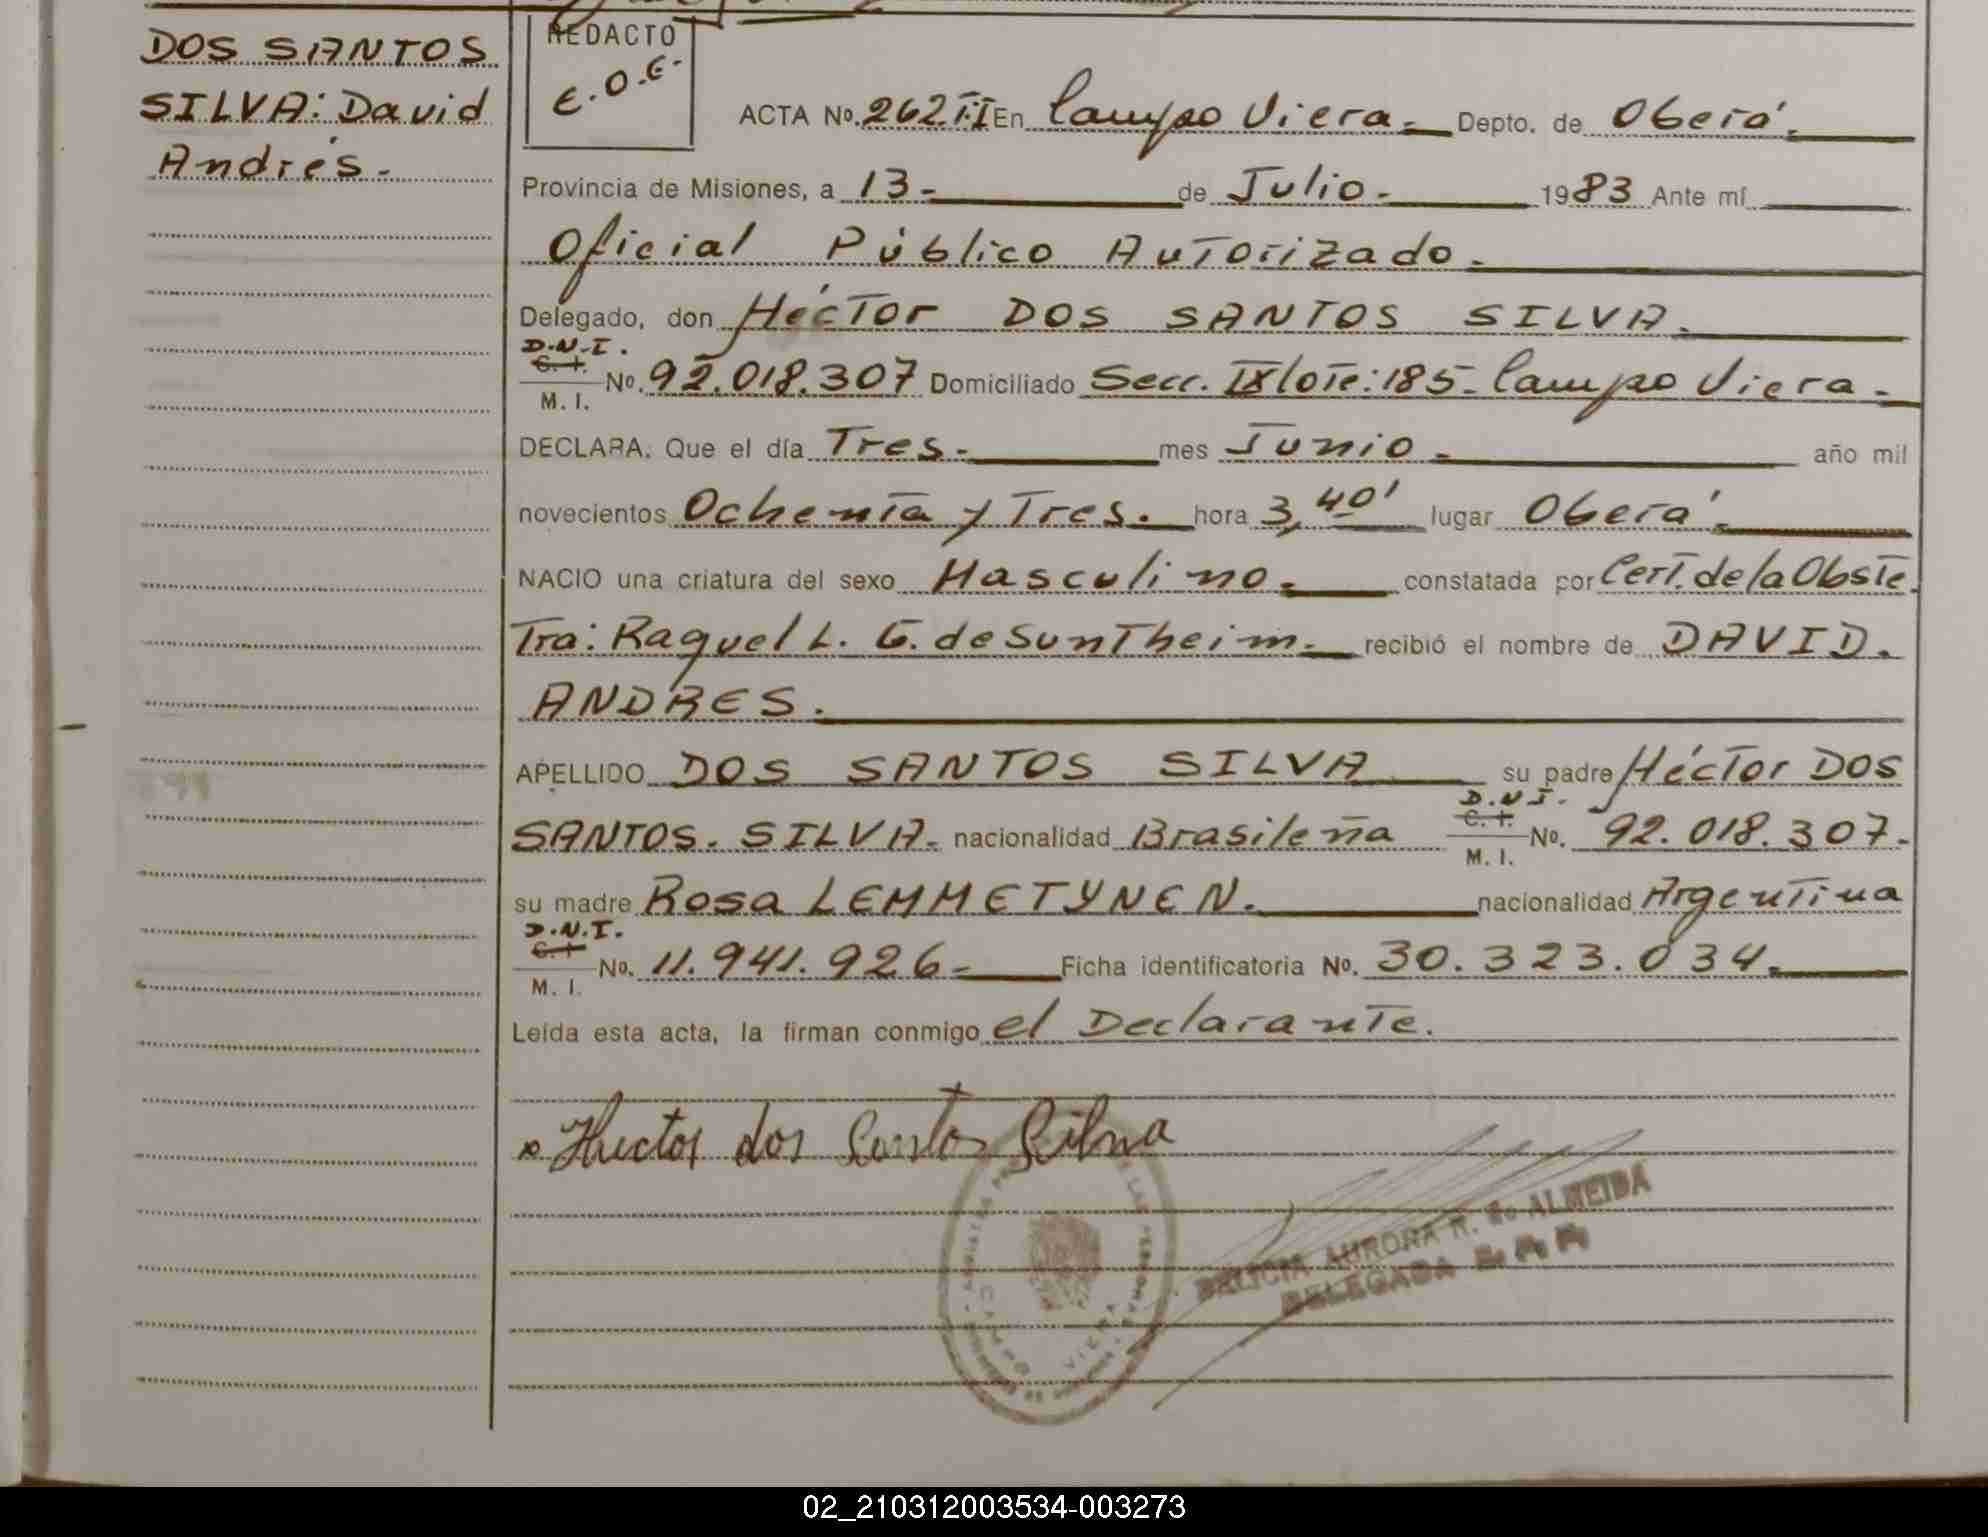 DOS SANTOS
SILVA: David
Andrés.-
REDACTO
E.O.E.
ACTA No. 262 II En Campo Viera.- Depto. de Oberá.-
Provincia de Misiones, a 13.- de Julio.- 1983 Ante mí
Oficial Público Autorizado.-
Delegado, don Héctor DOS SANTOS SILVA.-
D.N.I. C. I. M. I. No. 92.018.307 Domiciliado Secc. IX lote: 185- Campo Viera.-
DECLARA. Que el día Tres.- mes Junio.- año mil
novecientos Ochenta y Tres.- hora 3,40' lugar Oberá.-
NACIO una criatura del sexo Masculino.- constatada por Cert. de la Obste
tra: Raquel L. G. de Suntheim.- recibió el nombre de DAVID.
ANDRES.-
APELLIDO DOS SANTOS SILVA su padre Héctor DOS
SANTOS. SILVA.- nacionalidad Brasileña D.N.I. C. I. M. I. No. 92.018.307.-
su madre Rosa LEMMETYNEN.- nacionalidad Argentina
D.N.I. C. I. M. I. No. 11.941.926- Ficha identificatoria No. 30.323.034.-
Leída esta acta, la firman conmigo el Declarante.
Hector dos Santos Silva
CAMPO VIERA
DELICIA AURORA R. de ALMEIDA
DELEGADA
02_210312003534-003273